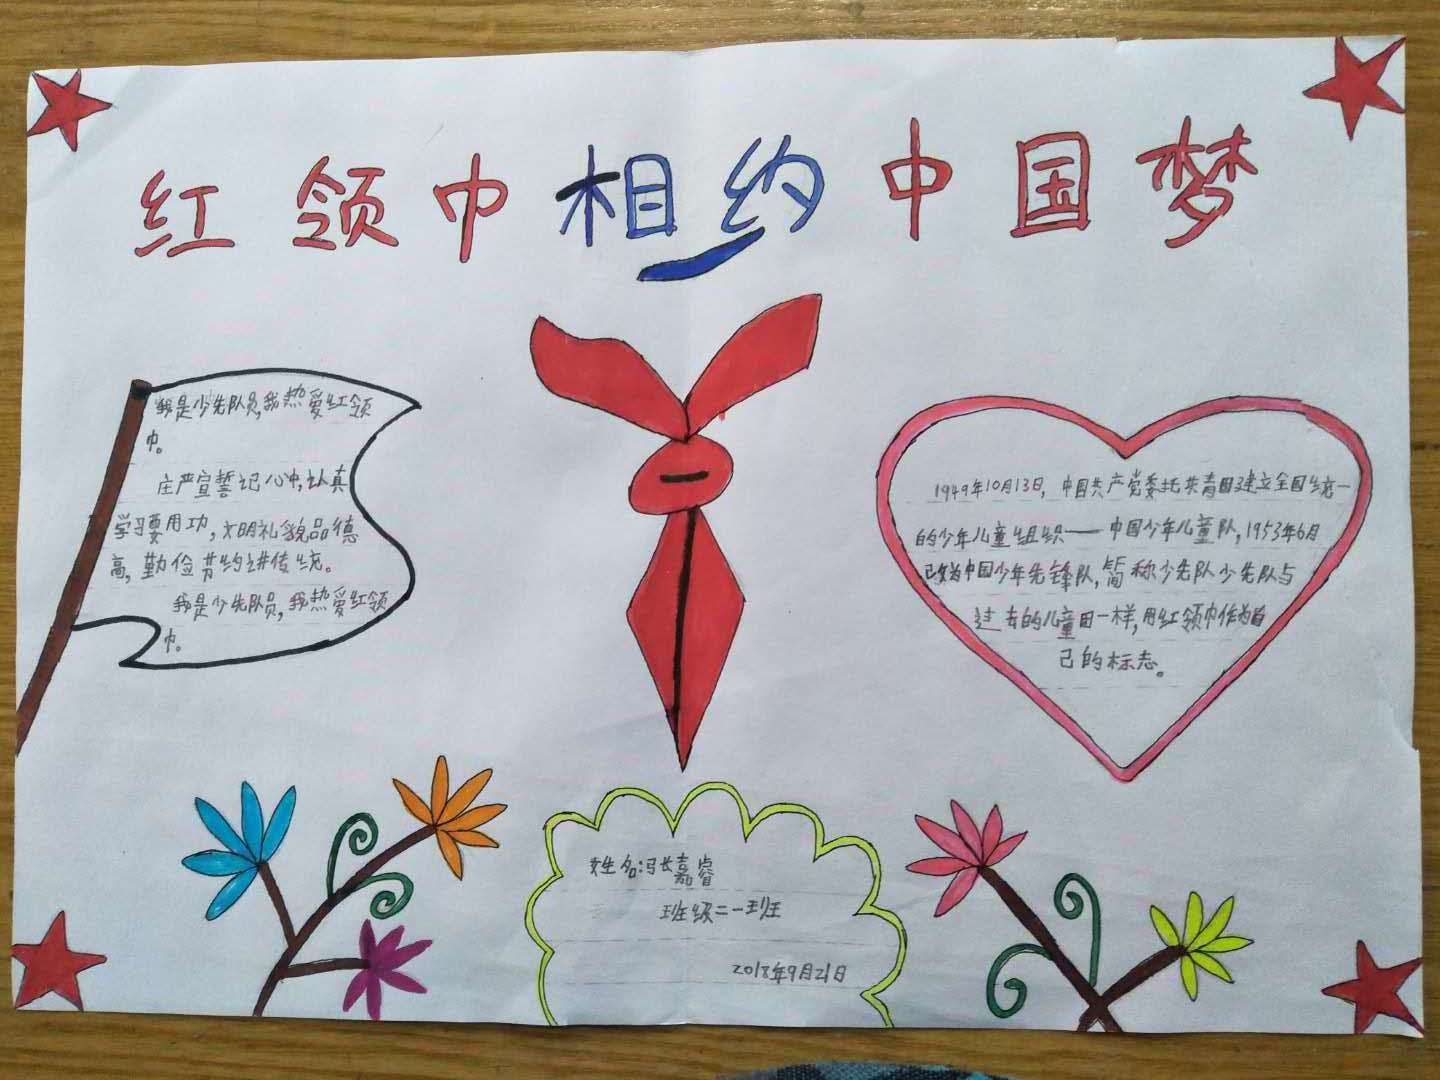 红领巾相约中国梦
我是少先队员,我热爱红领
巾。
庄严宣誓记心中,认真
学习要用功,文明礼貌品德
高,勤俭节约讲传统。
我是少先队员,我热爱红领
巾。
1949年10月13日,中国共产党委托共青团建立全国统一
的少年儿童组织——中国少年儿童队,1953年6月
改为中国少年先锋队,简称少先队少先队与
过去的儿童团一样,用红领巾作为自
己的标志。
姓名:张嘉睿
班级二一班
2018年9月21日